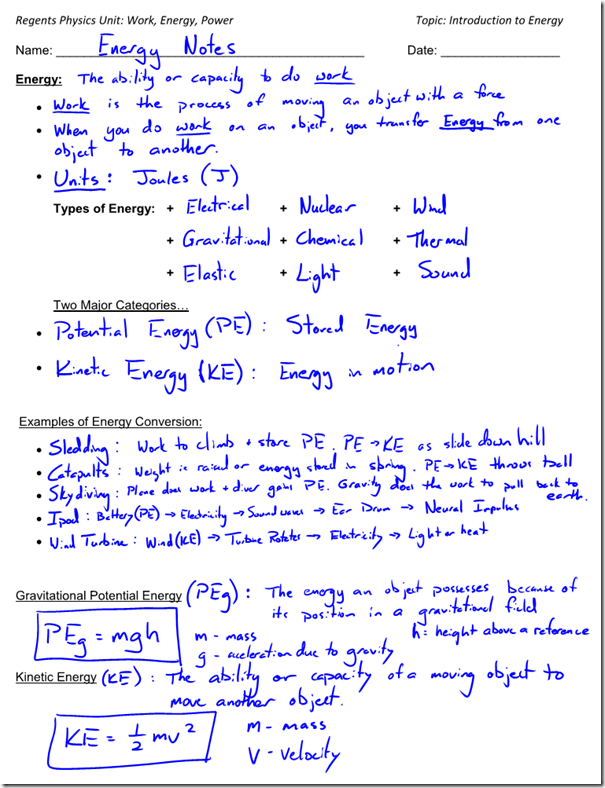 Regents Physics Unit: Work, Energy, Power Topic: Introduction to Energy
Name: Energy Notes Date:
Energy: The ability or capacity to do work
• Work is the process of moving an object with a force
• When you do work on an object, you transfer Energy from one
object to another.
• Units: Joules (J)
Types of Energy: + Electrical + Nuclear + Wind
+ Gravitational + Chemical + Thermal
+ Elastic + Light + Sound
Two Major Categories…
• Potential Energy (PE): Stored Energy
• Kinetic Energy (KE): Energy in motion
Examples of Energy Conversion:
• Sledding: Work to climb + store PE. PE → KE as slide down hill
• Catapults: Weight is raised or energy stored in spring. PE → KE throws ball
• Skydiving: Plane does work + diver gains PE. Gravity does the work to pull back to
earth.
• Ipod: Battery (PE) → Electricity → Sound waves → Ear Drum → Neural Impulses
• Wind Turbine: Wind (KE) → Turbine Rotates → Electricity → Light or heat
Gravitational Potential Energy (PEg): The energy an object possesses because of
its position in a gravitational field
PEg = mgh
m - mass h: height above a reference
g - acceleration due to gravity
Kinetic Energy (KE): The ability or capacity of a moving object to
move another object.
KE = ½ mv²
m - mass
v - velocity